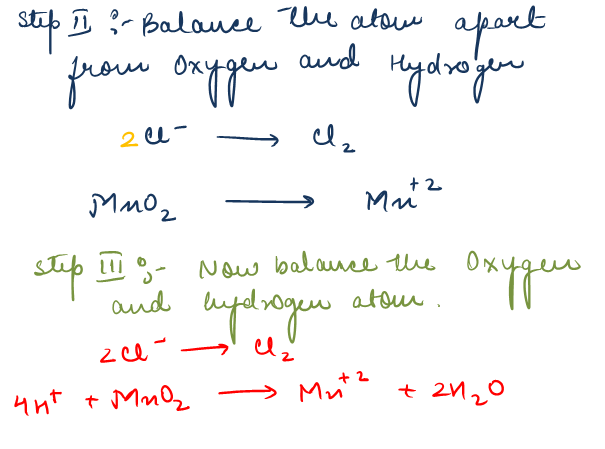 Step II :- Balance the atom apart
from Oxygen and Hydrogen
2Cl⁻ ⟶ Cl₂
MnO₂ ⟶ Mn⁺²
Step III :- Now balance the Oxygen
and hydrogen atom.
2Cl⁻ ⟶ Cl₂
4H⁺ + MnO₂ ⟶ Mn⁺² + 2H₂O